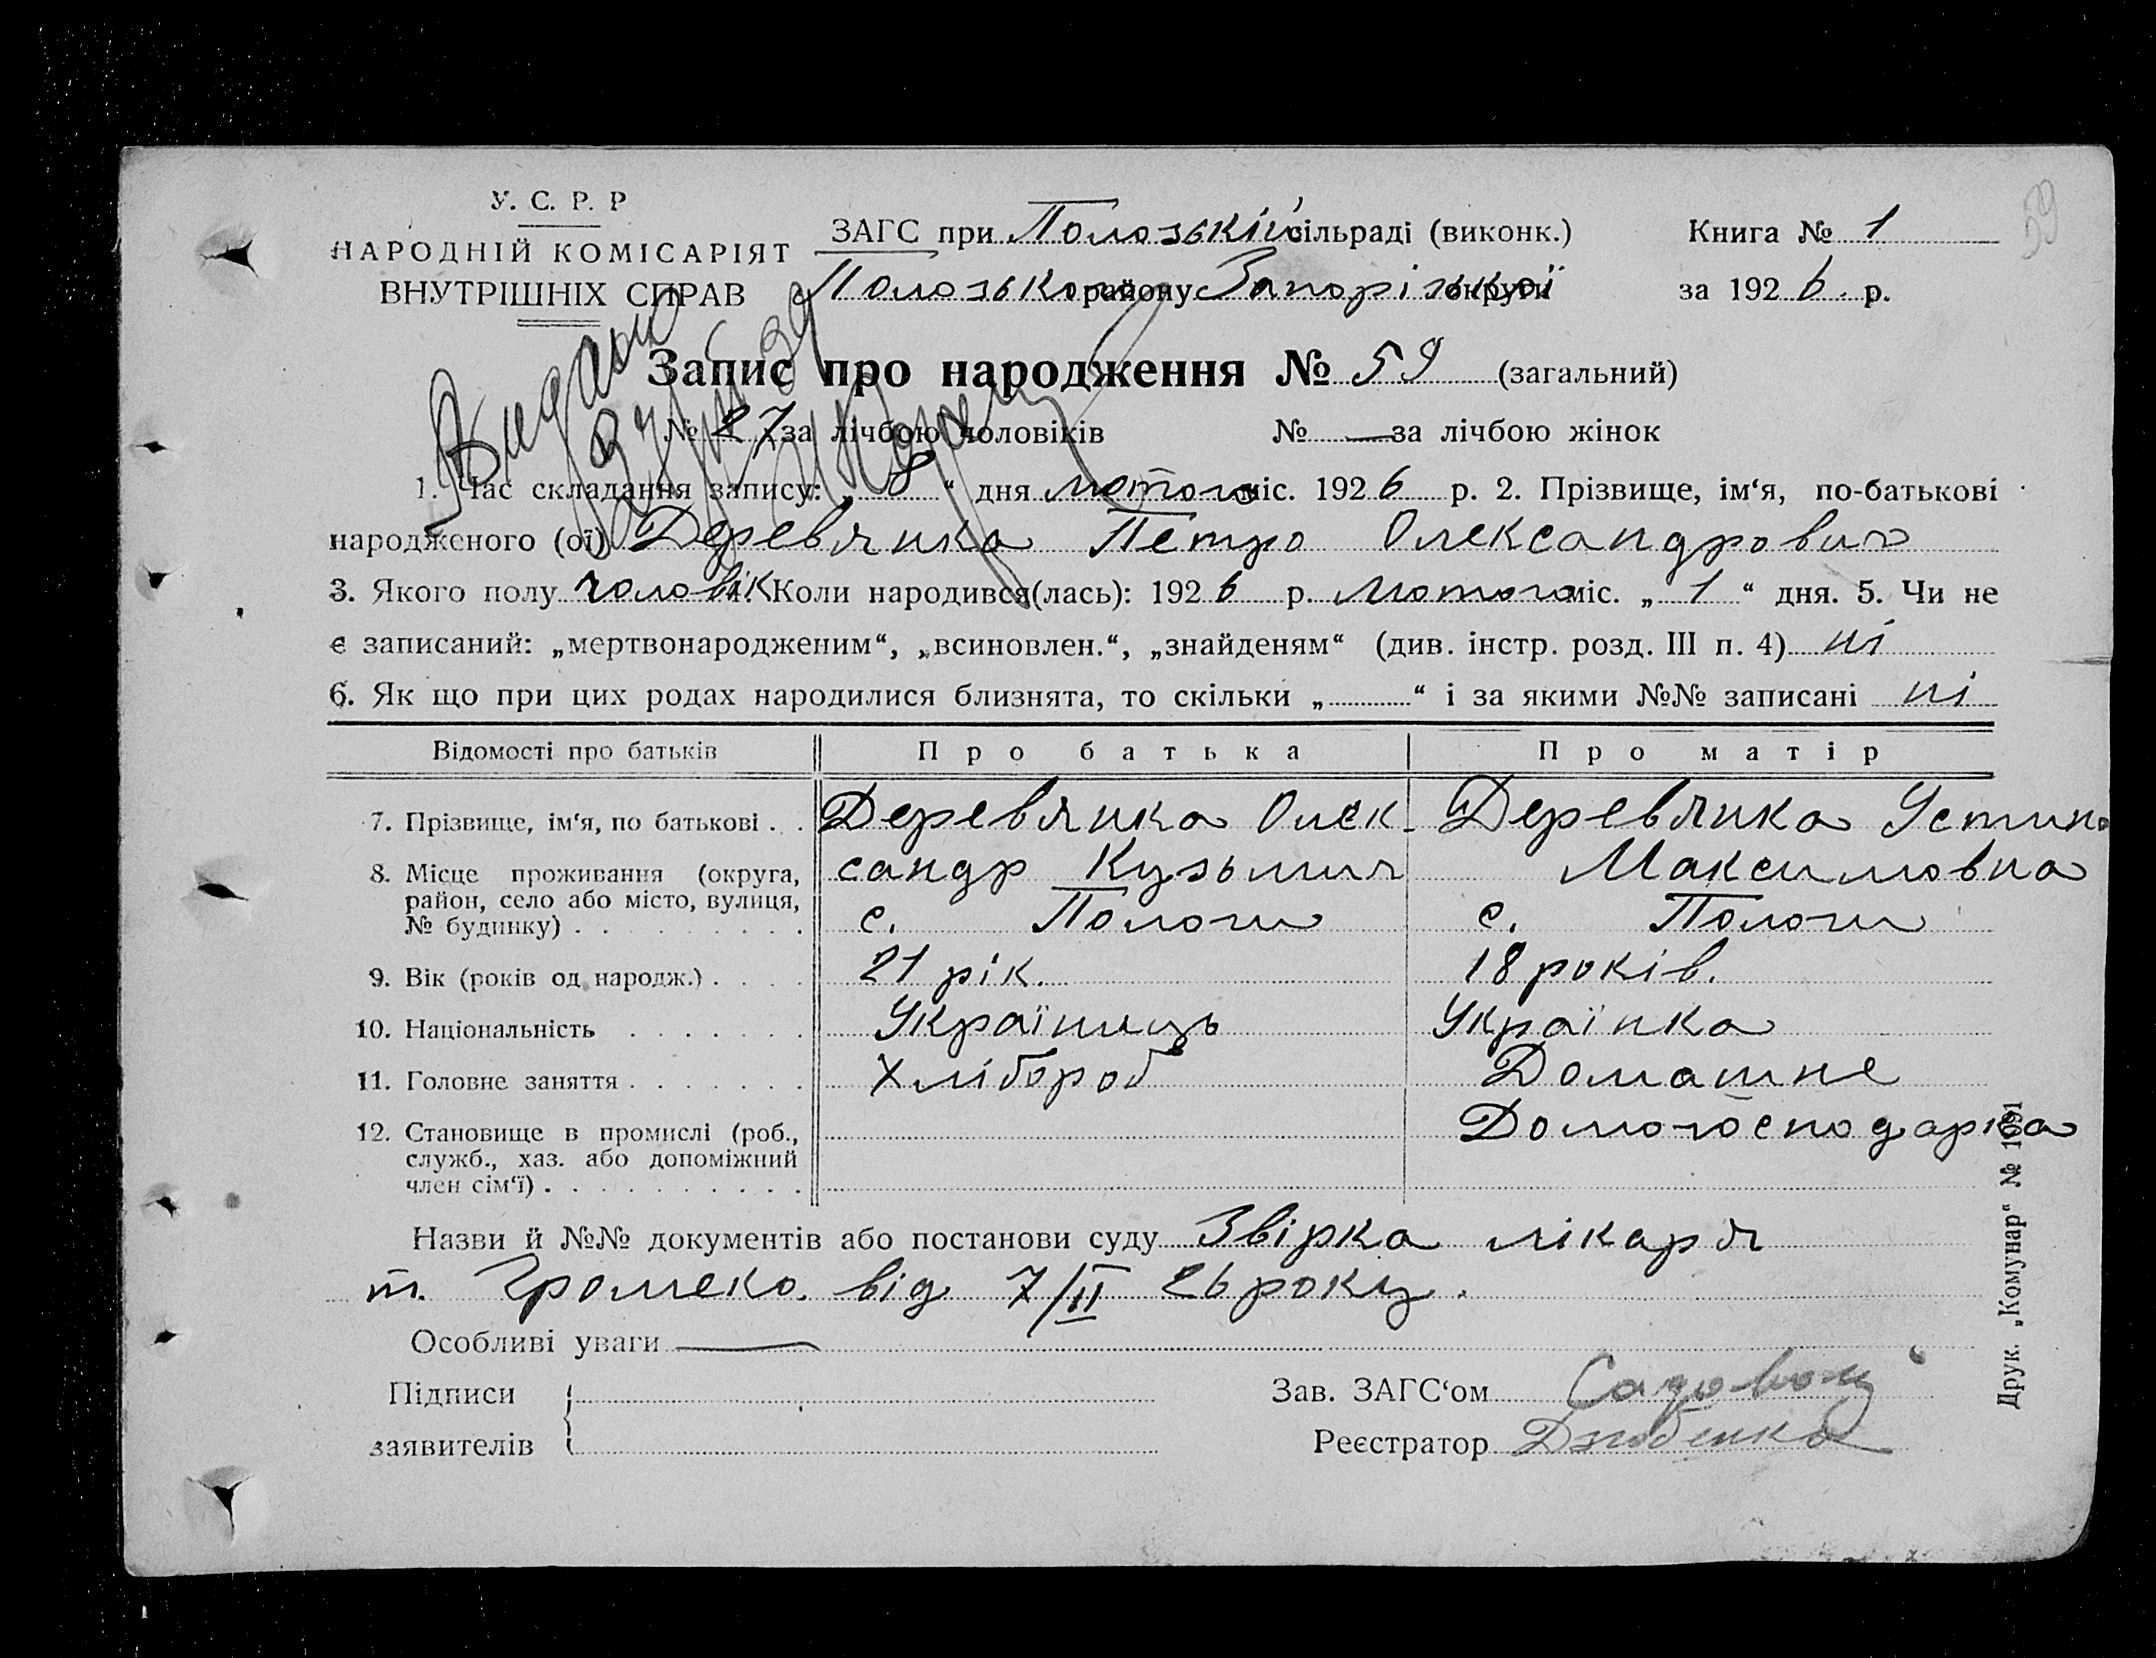 59
У. С. Р. Р
НАРОДНІЙ КОМІСАРІЯТ
ВНУТРІШНІХ СПРАВ
ЗАГС при Полозькій сільраді (виконк.)
Полозького району Запорізької округи
Книга № 1
за 1926 р.
Видано
Запис про народження № 59 (загальний)
№ 27 за лічбою чоловіків № — за лічбою жінок
1. Час складання запису: „8“ дня лютого міс. 1926 р. 2. Прізвище, ім‘я, по-батькові
народженого (ої) Деревянка Петро Олександрович
3. Якого полу чоловік 4. Коли народився(лась): 1926 р. Лютого міс. „1“ дня. 5. Чи не
є записаний: „мертвонародженим“, „всиновлен.“, „знайденям“ (див. інстр. розд. III п. 4) ні
6. Як що при цих родах народилися близнята, то скільки „ “ і за якими №№ записані ні
Відомості про батьків Про батька Про матір
7. Прізвище, ім‘я, по батькові . . Деревянка Олек- Деревянка Устина
сандр Кузьмич Максимовна
8. Місце проживання (округа,
район, село або місто, вулиця,
№ будинку) . с. Пологи с. Пологи
9. Вік (років од народж.) . 21 рік. 18 років.
10. Національність Українець Українка
11. Головне заняття . Хлібороб Домашнє
12. Становище в промислі (роб.,
служб., хаз. або допоміжний
член сім‘ї) . Домогосподарка
Назви й №№ документів або постанови суду Звірка лікаря
т. Громеко. від 7/II 26 року.
Особливі уваги —
Підписи
заявителів
Зав. ЗАГС‘ом
Реєстратор
Друк. „Комунар“ № 1091